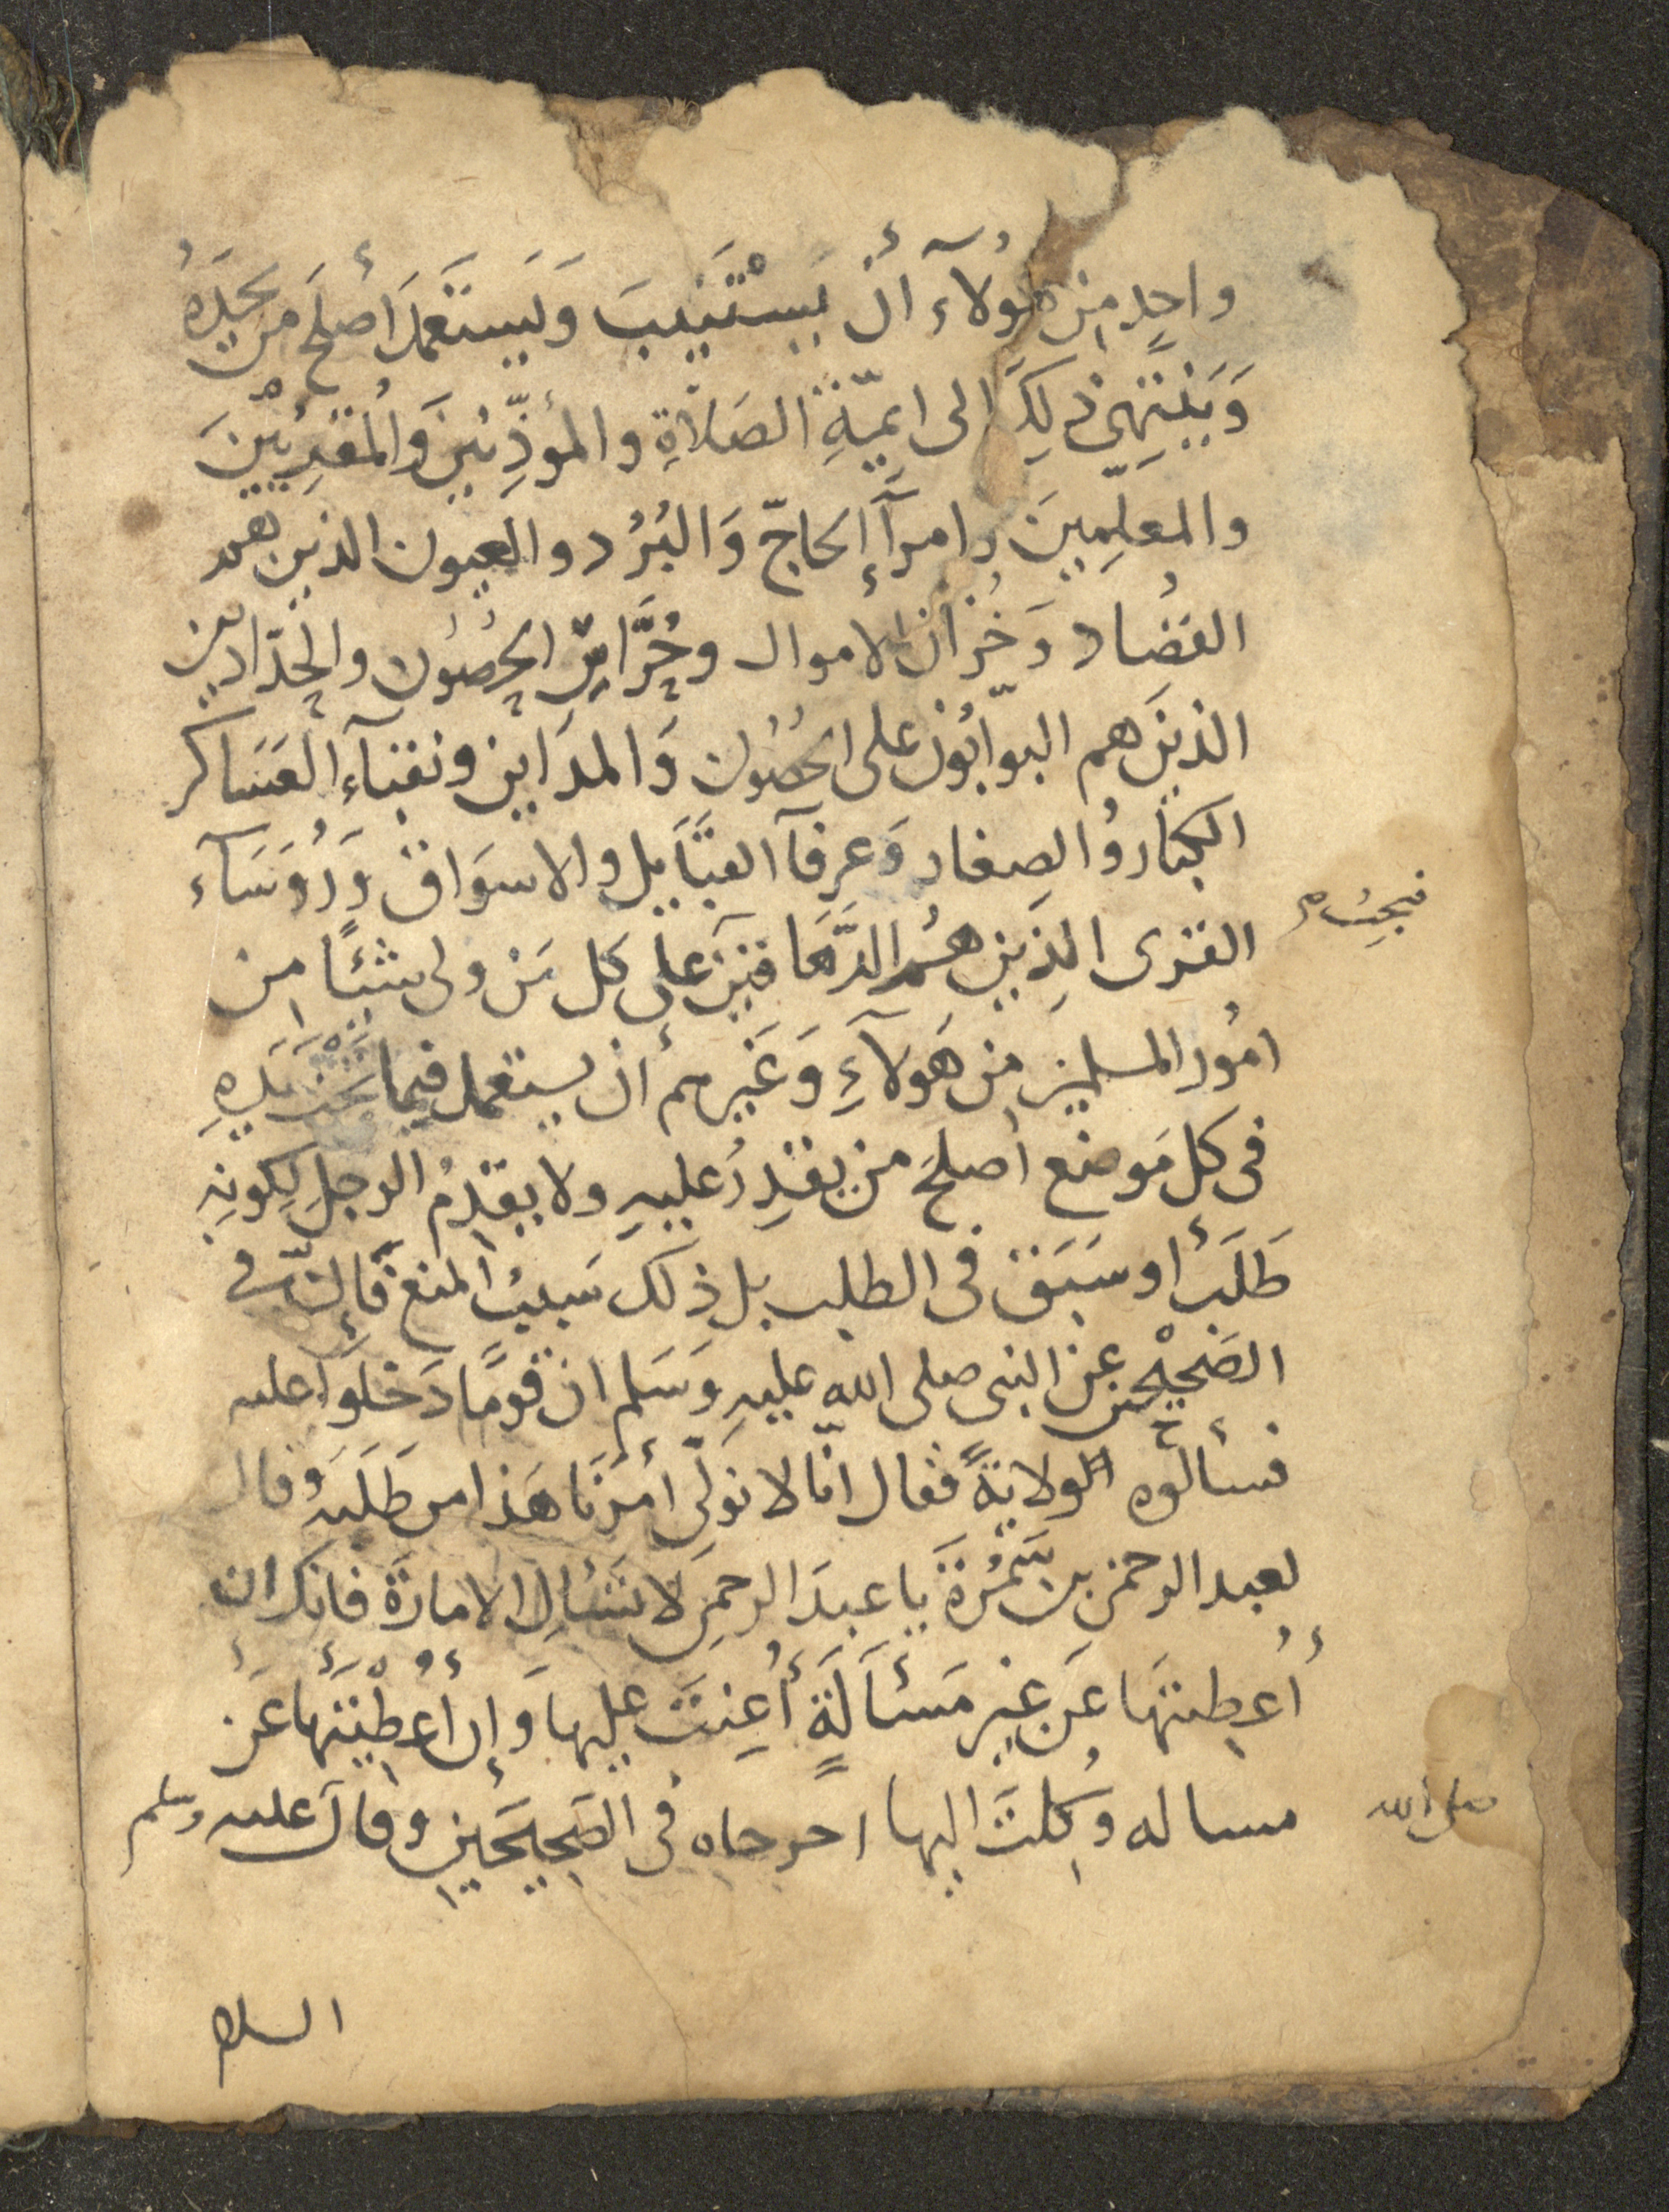 واحِدٍ مِن هؤُلآء أن يَسْتَنيبَ وَيَستَعمَلَ أصلَحَ من يَجِدُهُ
وَيَنتَهِي ذلِكَ الى ايمّةِ الصَلاةِ والمؤذِّنين وَالمُقرِيّينَ
والمعلِّمِينَ وامرآءِ الحَاجّ وَالبُرُد والعيون الذين هم
القصُاد وَخُزان الاموال وحُرَّاس الحِصُون والحدّادين
الذينَ هم البوّابُون على الحصُون وَالمدَاين ونقبَآءِ العَسَاكر
الكبَار والصِغار وَعرفآ القبَايل والاسوَاق وَرُؤسَآء
القرى الذين همُ الدَّهَاقين على كل مَن ولى شيئًا من
فيجبُ
امُور المسلمين من هَولآءِ وَغَيرهم أن يستعمل فيما تحْتَ يَدِهِ
فى كل مَوضع أصلحَ من يقدِرُ عليهِ ولا يقدِمُ الرجلِ لِكونِهِ
طَلَبَ أو سَبَقَ فى الطلب بل ذلك سَببُ المنع فَإنّ في
الصَحيْحين عن النبى صلى الله عليهِ وَسَلم ان قومًا دَخلوا عليه
فسألوه الولايةً فقال انّا لا نولّى أمرَنَا هَذا من طَلبَهُ وقال
لعبد الرحمن بن سَمُرَة يا عبدَ الرحمنِ لا تَسْألِ الامارَة فانك ان
أُعطِيتهَا عَن غير مَسْألَةٍ أُعِنتَ عليها وَإن أُعْطِيتَهَا عَن
مساله وُكِلتَ اليها اخرجاه فى الصَحِيحَينِ وقال عليه وسلم
صلى الله
السلام